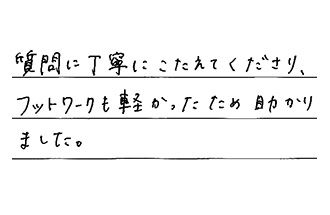 質問に丁寧にこたえてくださり、
フットワークも軽かったため助かり
ました。